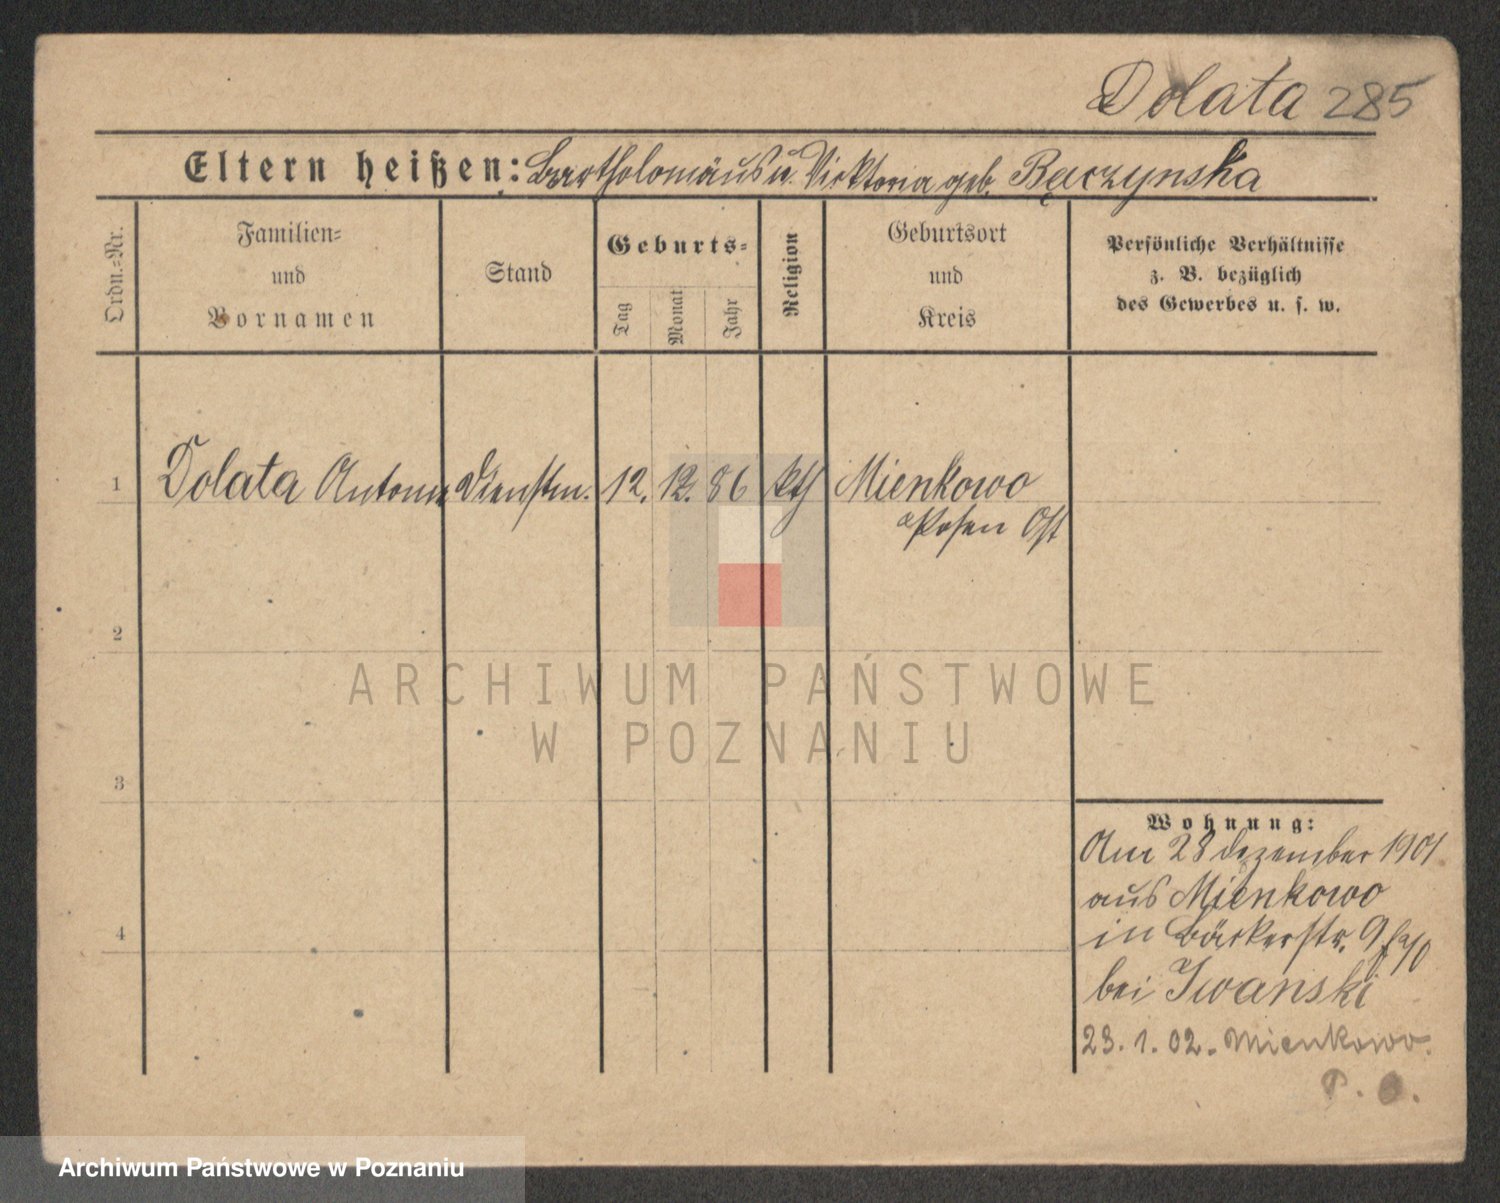 Dolata 285
Eltern heißen: Bartholomäus u. Vicktoria geb. Bączynska
Ordn.=Nr.
Familien=
und
Vornamen
Stand
Geburts=
Tag
Monat
Jahr
Religion
Geburtsort
und
Kreis
Persönliche Verhältnisse
z. B. bezüglich
des Gewerbes u. s. w.
1 Dolata Antonie Dienstm. 12. 12. 86 kth Mienkowo
Posen Ost
2
3
4
Wohnung:
Am 28 dezember 1901
aus Mienkowo
in Bäckerstr. 9
bei Iwanski
23. 1. 02. Mienkowo.
P. O.
ARCHIWUM PAŃSTWOWE
W POZNANIU
Archiwum Państwowe w Poznaniu